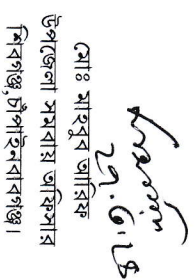 ২৭.৫.২৪
মোঃ মাহবুব আরিফ
উপজেলা সমবায় অফিসার
শিবগঞ্জ, চাঁপাইনবাবগঞ্জ।